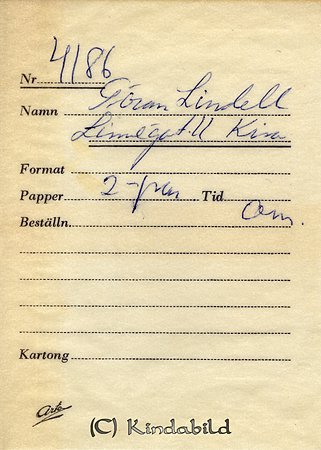 Nr 4186
Namn Göran Lindell
Linnégat. 11 Kisa
Format
Papper 2-pen Tid
Beställn. om.
Kartong
Ark
(C) Kindabild